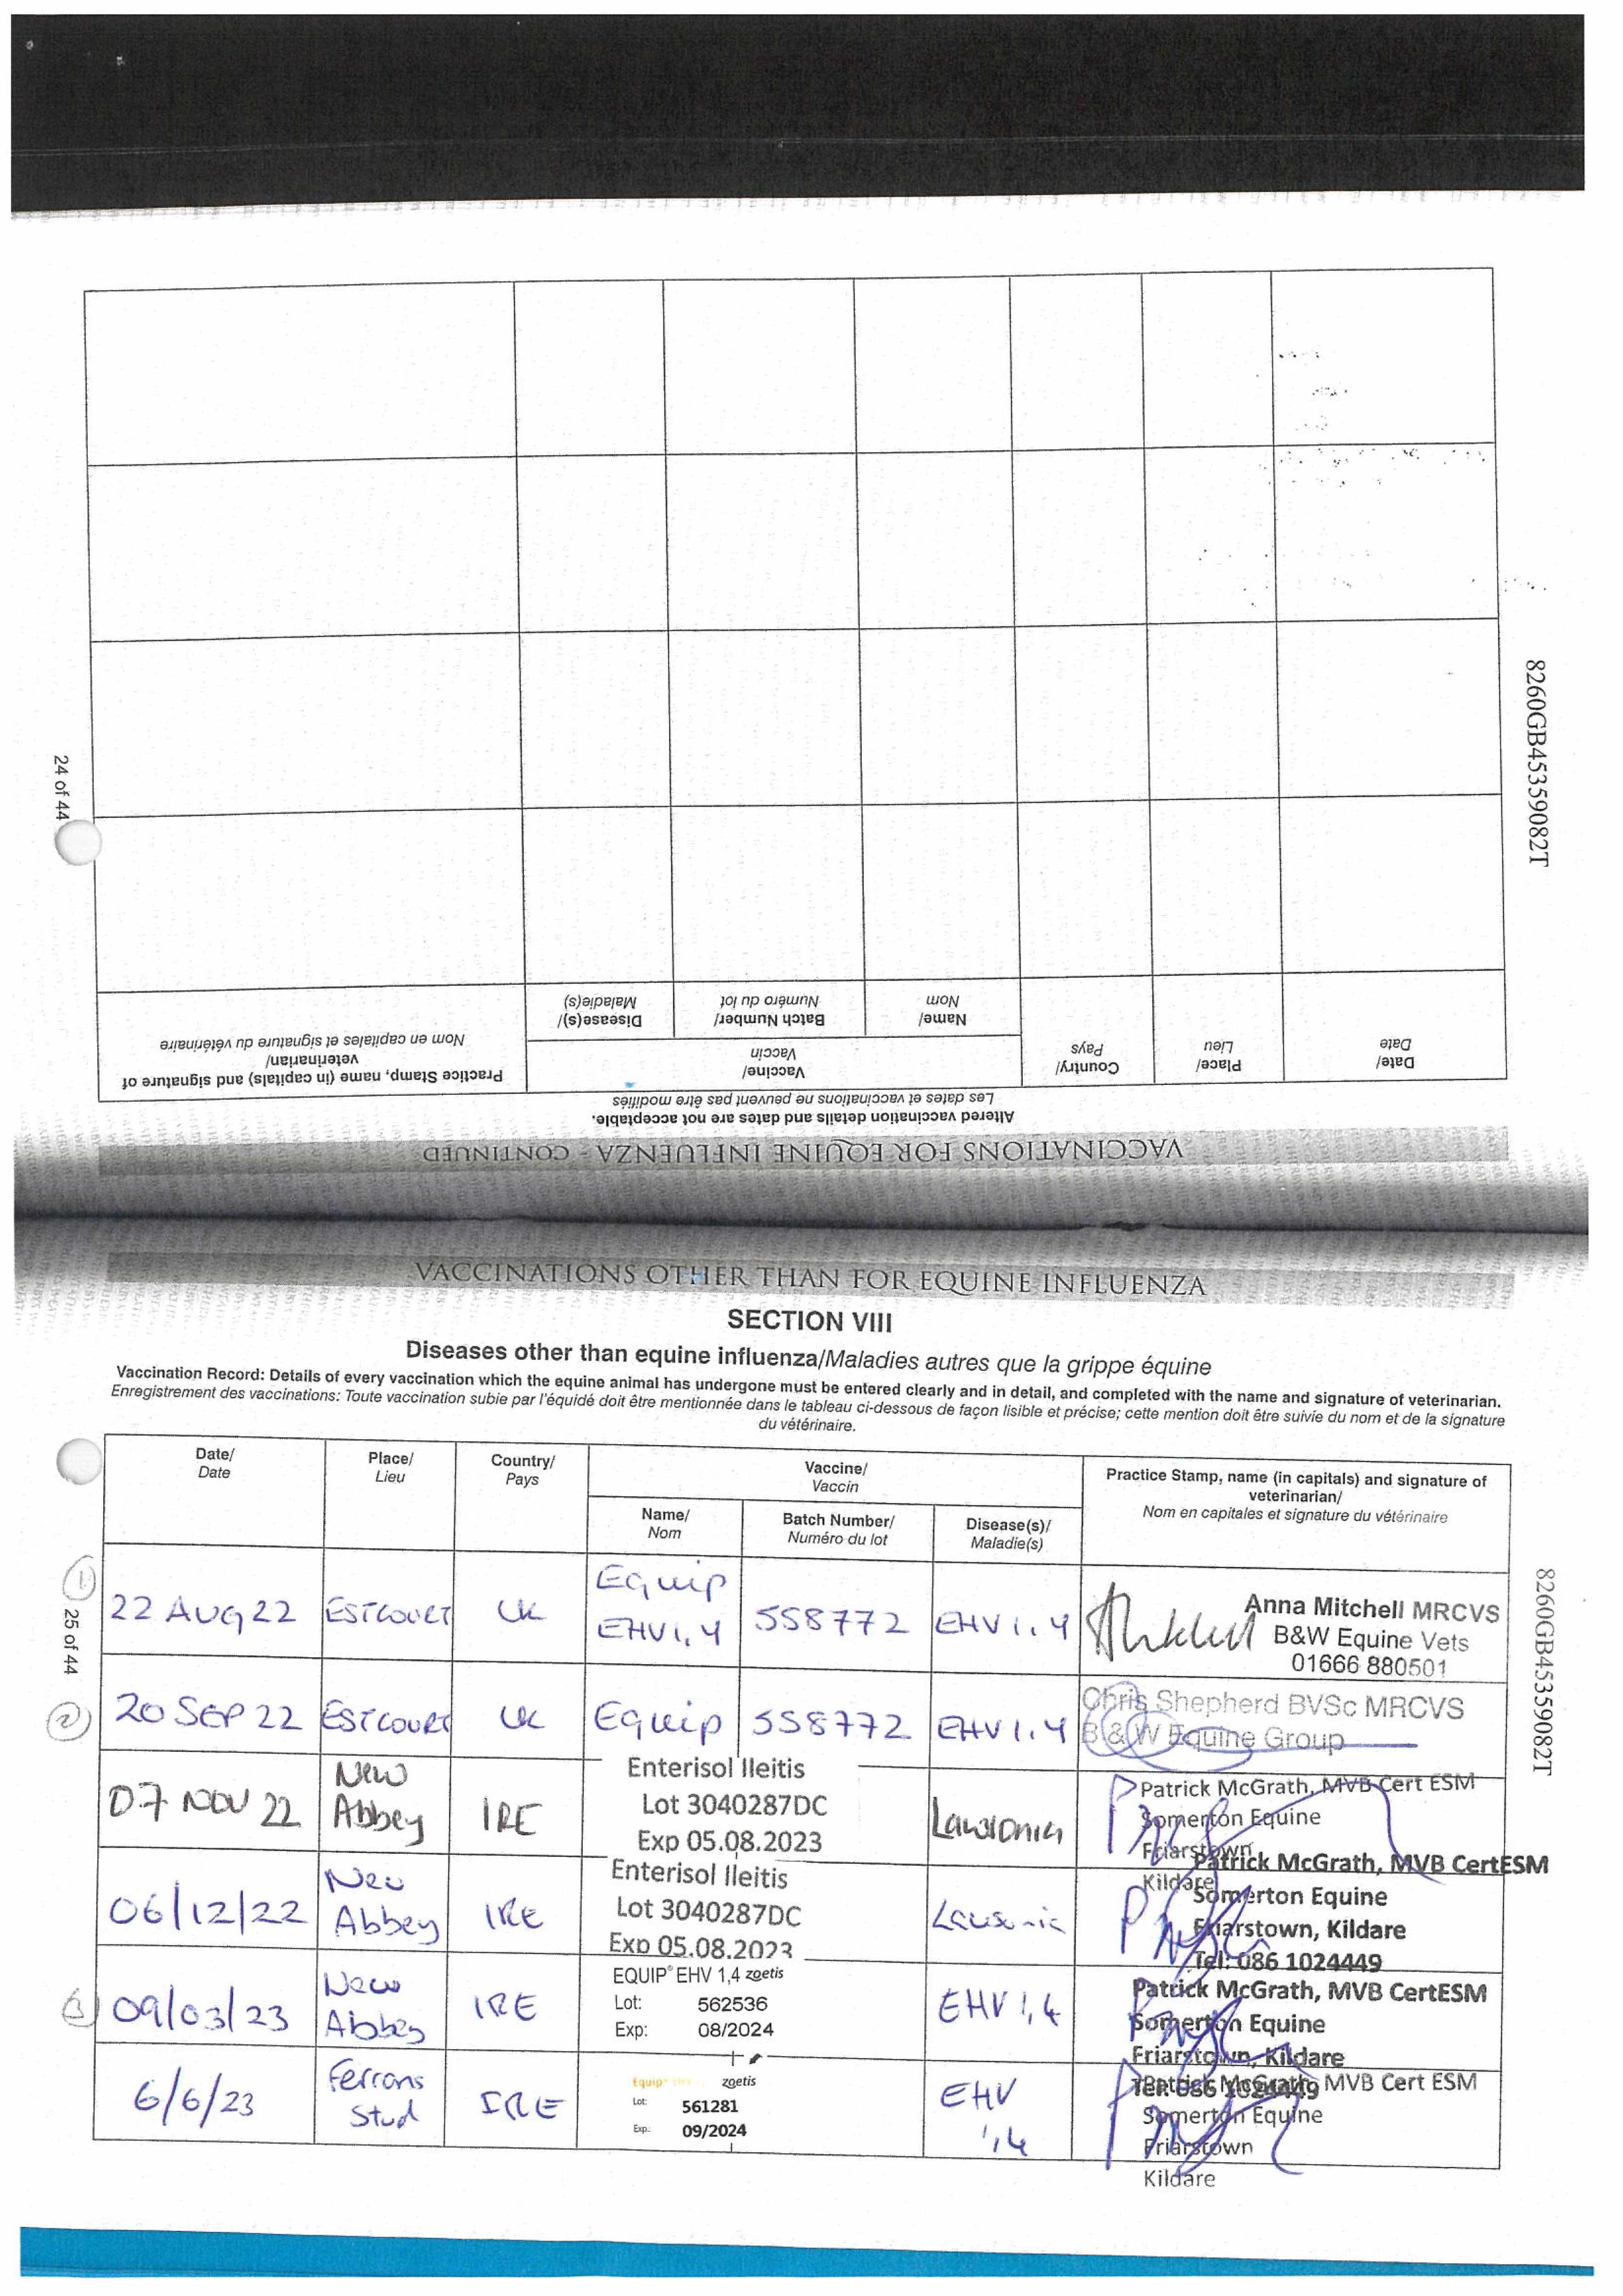 VACCINATIONS FOR EQUINE INFLUENZA - CONTINUED
Altered vaccination details and dates are not acceptable.
Les dates et vaccinations ne peuvent pas être modifiés
Date/
Date
Place/
Lieu
Country/
Pays
Vaccine/
Vaccin
Name/
Nom
Batch Number/
Numéro du lot
Disease(s)/
Maladie(s)
Practice Stamp, name (in capitals) and signature of
veterinarian/
Nom en capitales et signature du vétérinaire
24 of 44
8260GB45359082T
VACCINATIONS OTHER THAN FOR EQUINE INFLUENZA
SECTION VIII
Diseases other than equine influenza/Maladies autres que la grippe équine
Vaccination Record: Details of every vaccination which the equine animal has undergone must be entered clearly and in detail, and completed with the name and signature of veterinarian.
Enregistrement des vaccinations: Toute vaccination subie par l'équidé doit être mentionnée dans le tableau ci-dessous de façon lisible et précise; cette mention doit être suivie du nom et de la signature
du vétérinaire.
Date/
Date
Place/
Lieu
Country/
Pays
Vaccine/
Vaccin
Name/
Nom
Batch Number/
Numéro du lot
Disease(s)/
Maladie(s)
Practice Stamp, name (in capitals) and signature of
veterinarian/
Nom en capitales et signature du vétérinaire
1
22 AUG 22 ESTCOURT UK Equip
EHV1,4 558772 EHV 1,4
Anna Mitchell MRCVS
B&W Equine Vets
01666 880501
2
20 SEP 22 ESTCOURT UK Equip 558772 EHV 1,4
Chris Shepherd BVSc MRCVS
B & W Equine Group
07 NOV 22 New
Abbey IRE
Enterisol Ileitis
Lot 3040287DC
Exp 05.08.2023
Lawsonia
Patrick McGrath, MVB Cert ESM
Somerton Equine
Friarstown
Kildare
06/12/22 New
Abbey IRE
Enterisol Ileitis
Lot 3040287DC
Exp 05.08.2023
Lawsonia
Patrick McGrath, MVB CertESM
Somerton Equine
Friarstown, Kildare
Tel: 086 1024449
3
09/03/23 New
Abbey IRE
EQUIP® EHV 1,4 zoetis
Lot: 562536
Exp: 08/2024
EHV 1,4
Patrick McGrath, MVB CertESM
Somerton Equine
Friarstown, Kildare
Tel: 086 1024449
6/6/23 Ferrans
Stud IRE
Equip zoetis
Lot: 561281
Exp: 09/2024
EHV
1,4
Patrick McGrath, MVB Cert ESM
Somerton Equine
Friarstown
Kildare
25 of 44
8260GB45359082T